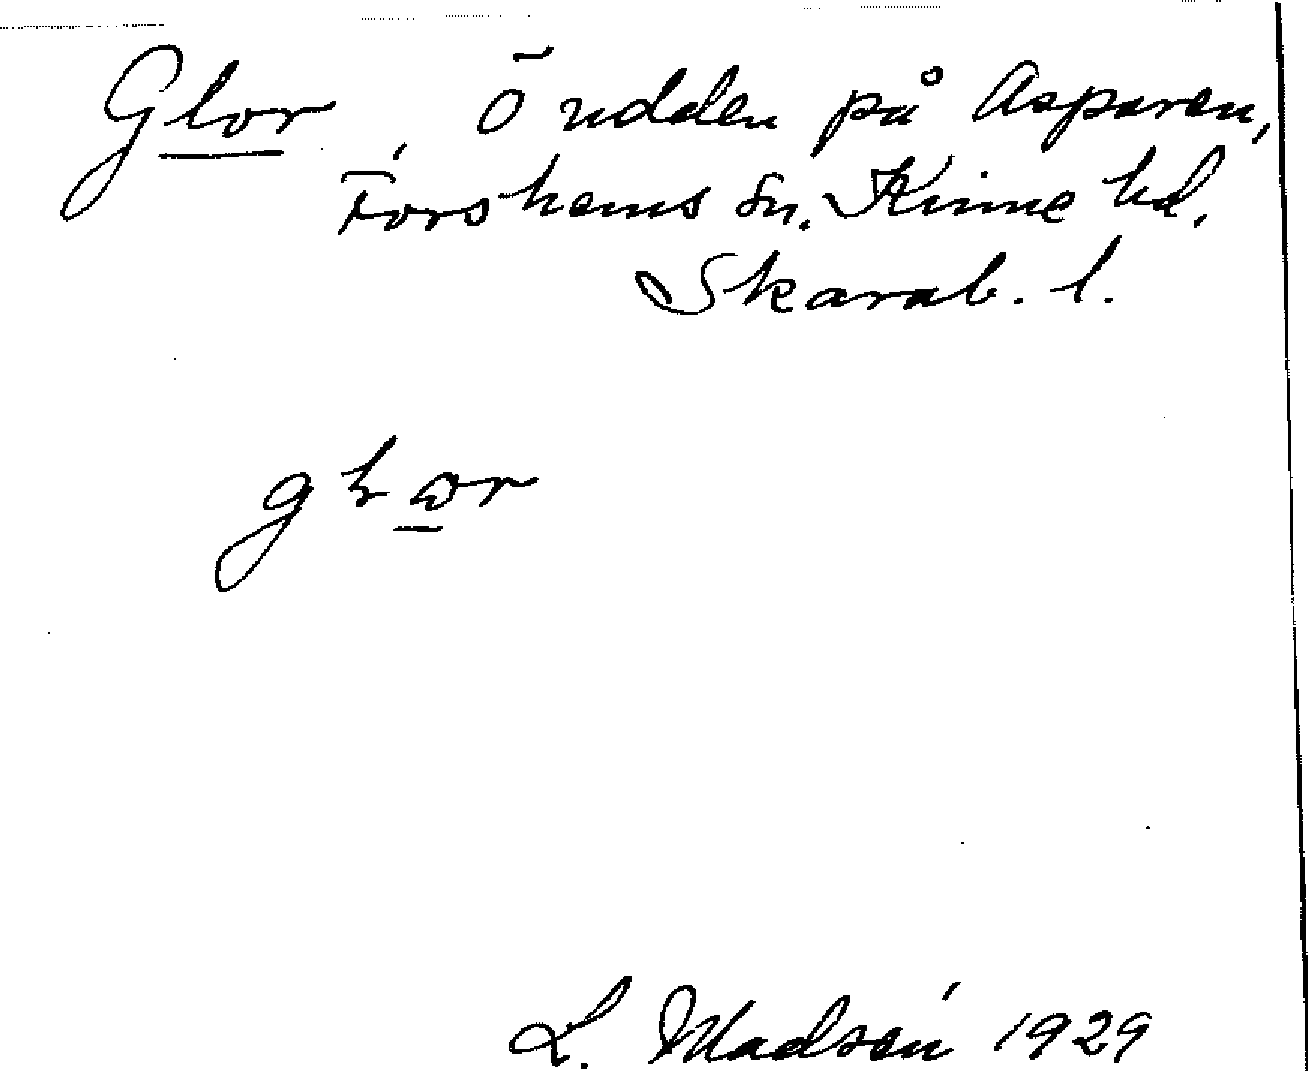 Glor, Ö udden på Asparen,
Forshems sn. Kinne hd.
Skarab. l.
L. Madsén 1929